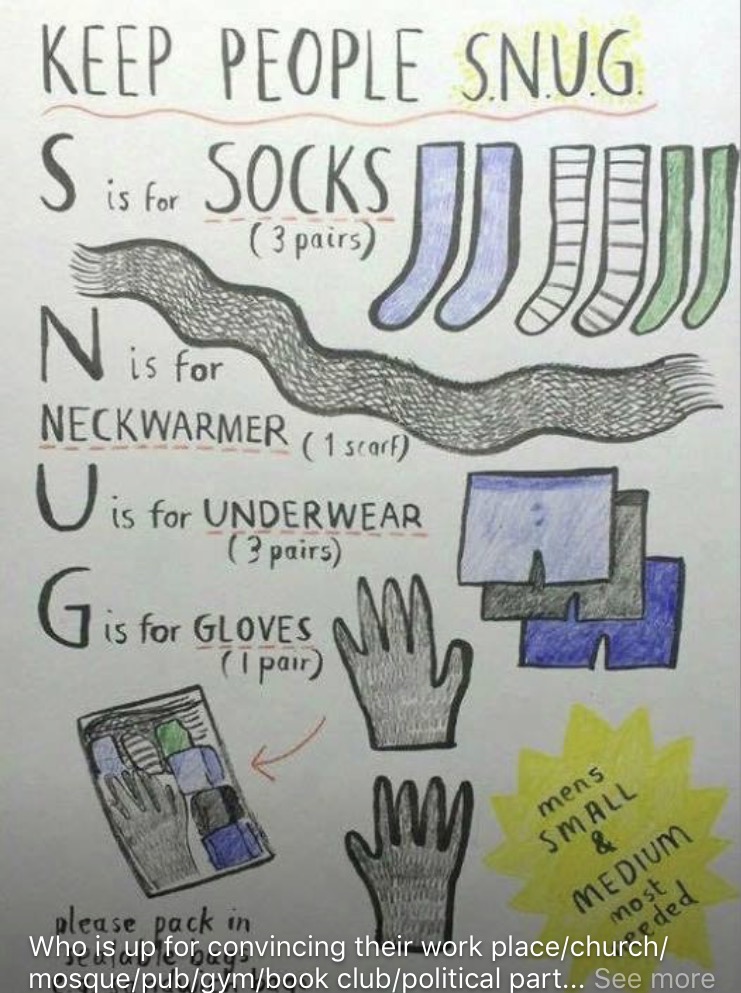 KEEP PEOPLE S.N.U.G.
S is for SOCKS
(3 pairs)
N is for
NECKWARMER (1 scarf)
U is for UNDERWEAR
(3 pairs)
G is for GLOVES
(1 pair)
mens
SMALL
&
MEDIUM
most
needed
please pack in
sealable bags
Who is up for convincing their work place/church/
mosque/pub/gym/book club/political part... See more